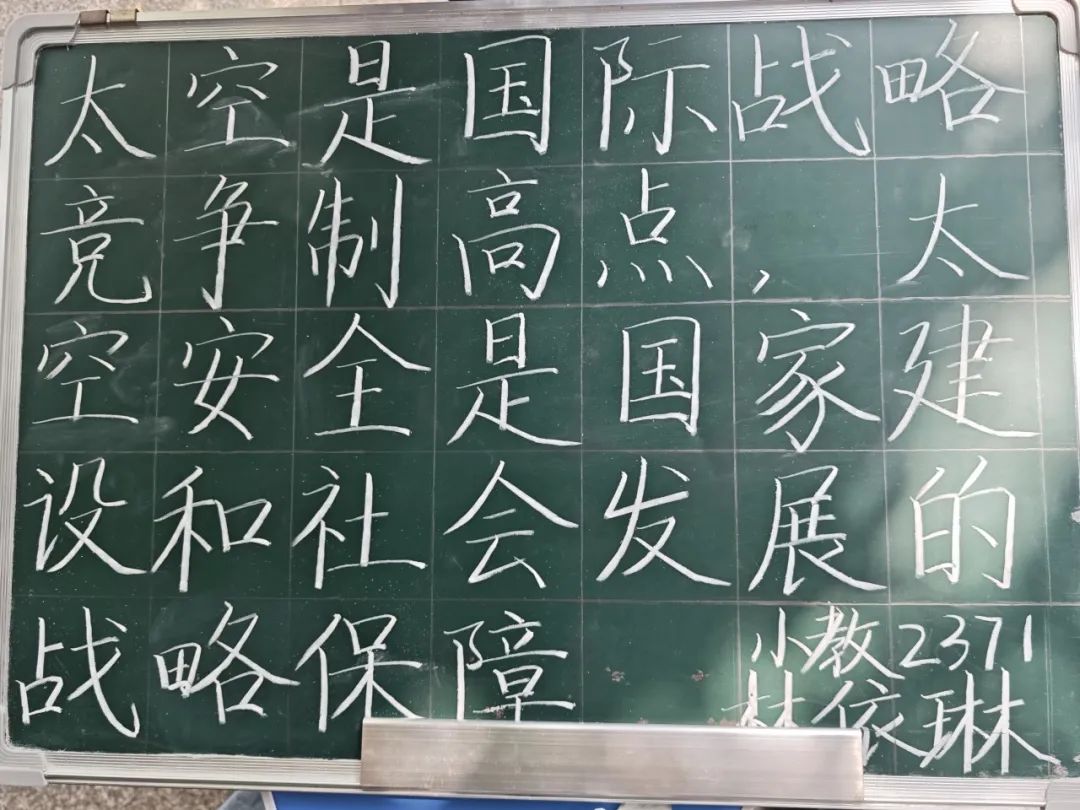 太空是国际战略
竞争制高点，太
空安全是国家建
设和社会发展的
战略保障
小教2371
林依琳